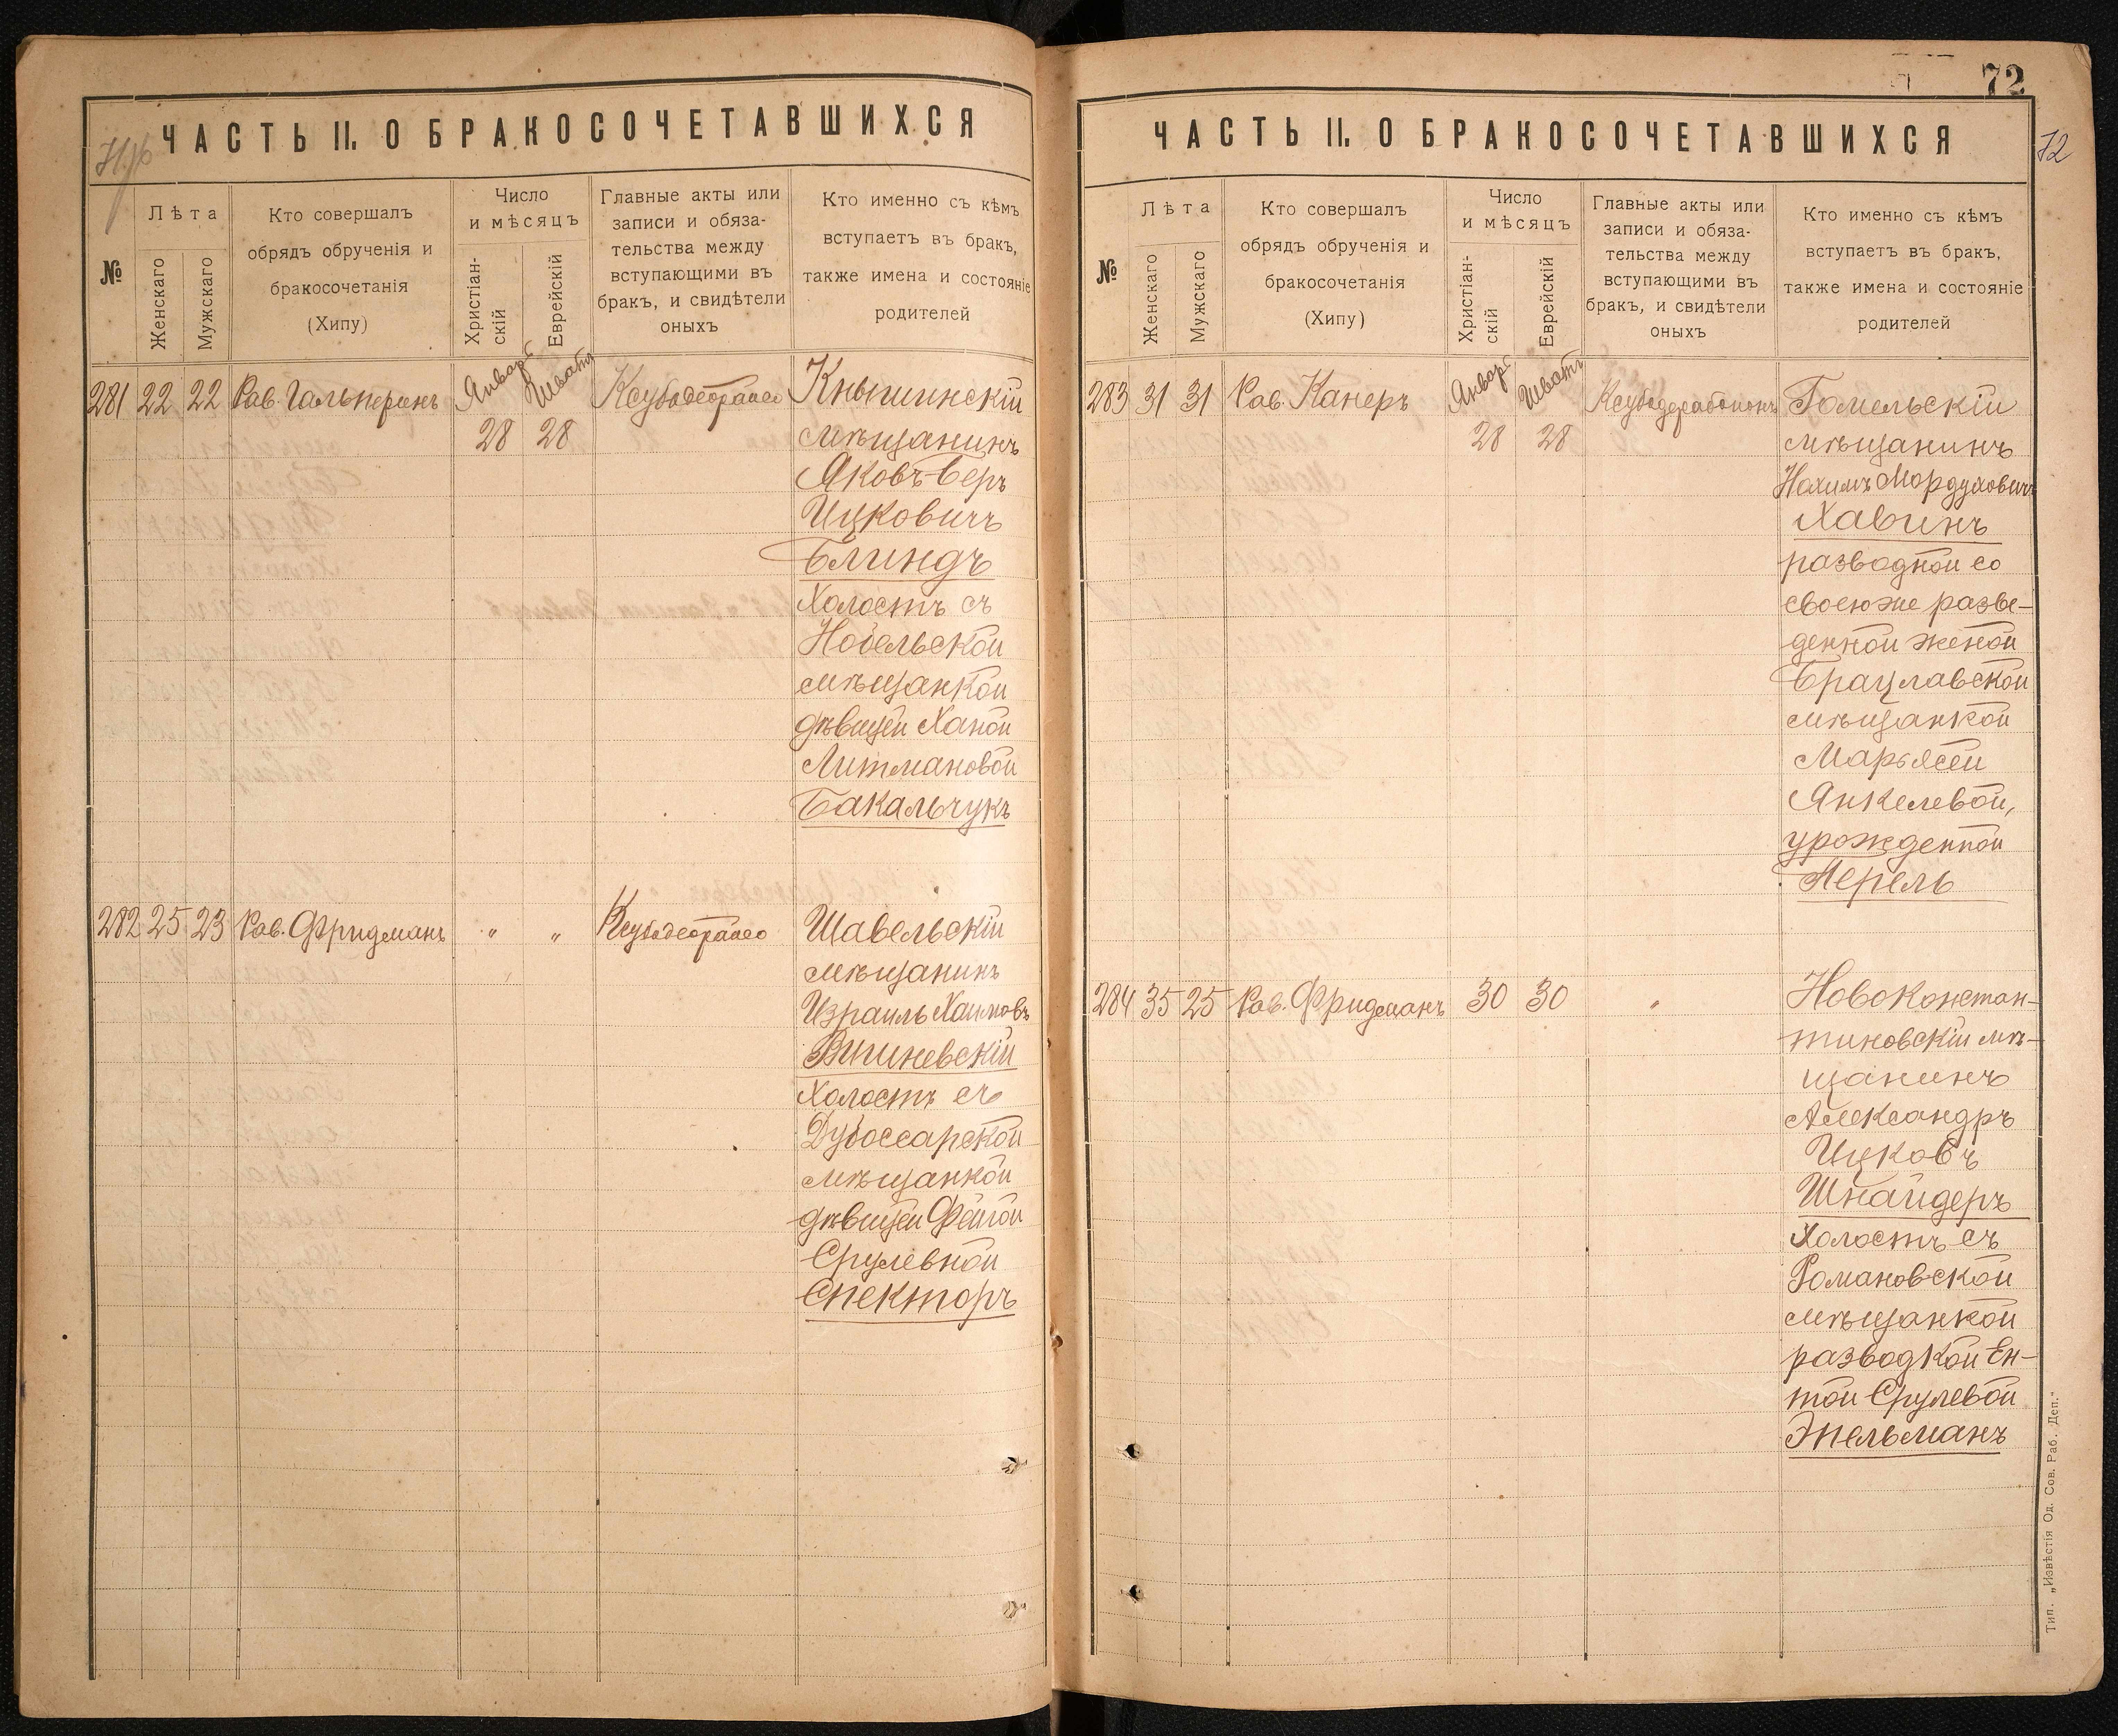 ЧАСТЬ II. О БРАКОСОЧЕТАВШИХСЯ
№
Лѣта
Женскаго
Мужскаго
Кто совершалъ
обрядъ обрученія и
бракосочетанія
(Хипу)
Число
и мѣсяцъ
Христіан-
скій
Еврейскій
Главные акты или
записи и обяза-
тельства между
вступающими въ
бракъ, и свидѣтели
оныхъ
Кто именно съ кѣмъ
вступаетъ въ бракъ,
также имена и состояніе
родителей
281 22 22 Рав. Гальперинъ Январь Шватъ
28 28
Кнышинскій
мѣщанинъ
Яковъ-Беръ
Ицковичъ
Блиндъ
Холостъ съ
Нобельской
мѣщанкой
дѣвицей Ханой
Литмановой
Бакальчукъ
282 25 23 Рав. Фридманъ " "
Шавельскій
мѣщанинъ
Израиль Хаимовъ
Вишневскій
Холостъ съ
Дубоссарской
мѣщанкой
дѣвицей Фейгой
Срулевной
Спекторъ
72
72
ЧАСТЬ II. О БРАКОСОЧЕТАВШИХСЯ
№
Лѣта
Женскаго
Мужскаго
Кто совершалъ
обрядъ обрученія и
бракосочетанія
(Хипу)
Число
и мѣсяцъ
Христіан-
скій
Еврейскій
Главные акты или
записи и обяза-
тельства между
вступающими въ
бракъ, и свидѣтели
оныхъ
Кто именно съ кѣмъ
вступаетъ въ бракъ,
также имена и состояніе
родителей
283 31 31 Рав. Канеръ Январь Шватъ
28 28
Гомельскій
мѣщанинъ
Нахимъ Мордуховичъ
Хавинъ
разводной со
своею же разве-
денной женой
Брацлавской
мѣщанкой
Марьясей
Янкелевой,
урожденной
Перель
284 35 25 Рав. Фридманъ 30 30 "
Новоконстан-
тиновскій мѣ-
щанинъ
Александръ
Ицковъ
Шнайдеръ
Холостъ съ
Романовской
мѣщанкой
разводкой Ен-
той Срулевой
Эпельманъ
Тип. „Извѣстія Од. Сов. Раб. Деп."